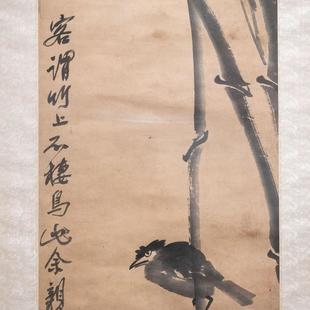 客谓竹上不棲鳥此余親